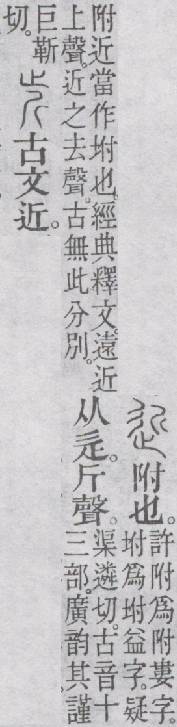 近附也。
許附爲附婁字。
坿爲坿益字。疑
附近當作坿也。經典釋文。遠近
上聲。近之去聲。古無此分別。
从辵。斤聲。
渠遴切。古音十
三部。廣韵其謹
巨靳
切。
古文近。